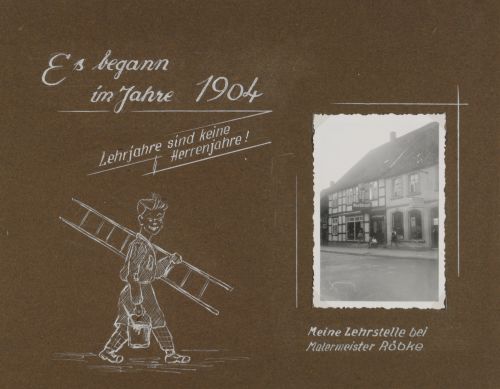 Es begann
im Jahre 1904
Lehrjahre sind keine
Herrenjahre!
Meine Lehrstelle bei
Malermeister Röbke